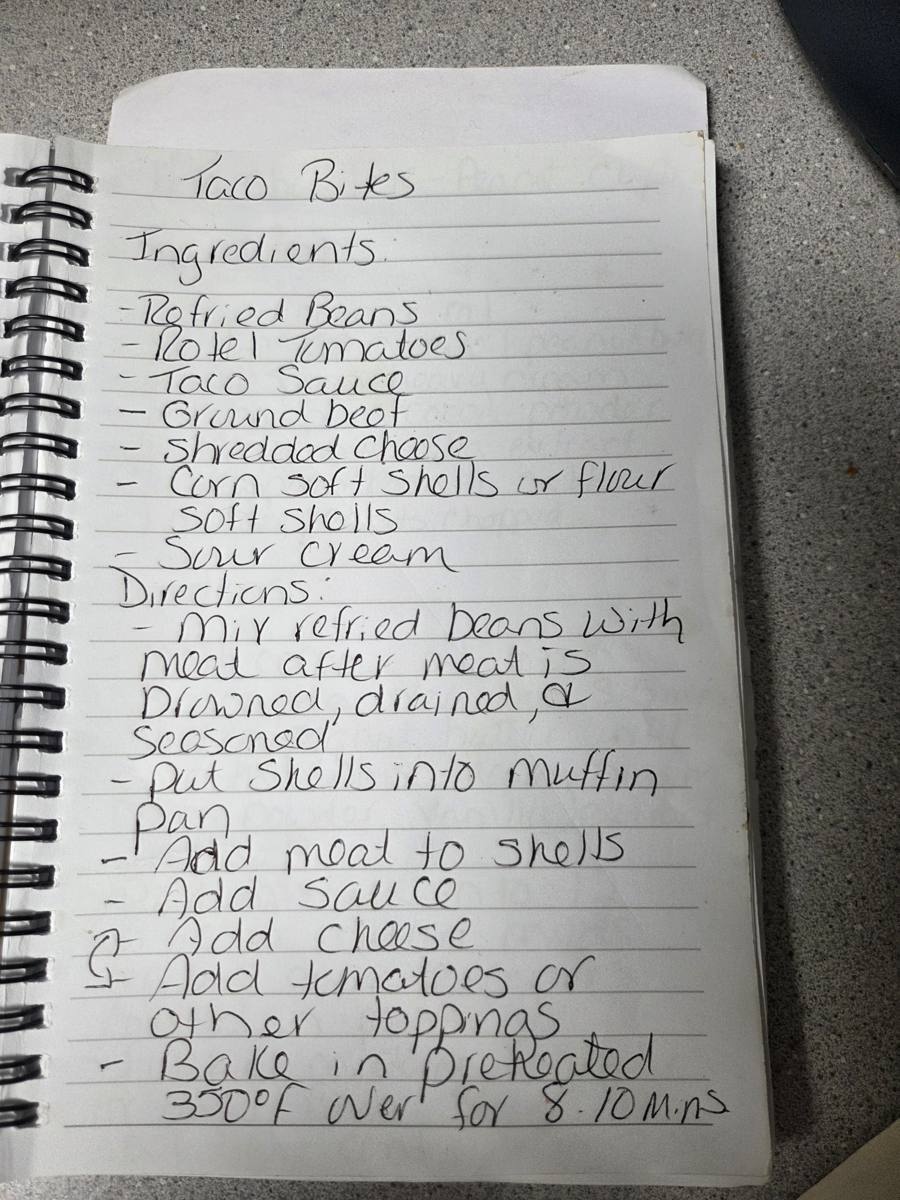 Taco Bites
Ingredients:
- Refried Beans
- Rotel Tomatoes
- Taco Sauce
- Ground beef
- Shredded Cheese
- Corn soft shells or flour
soft shells
- Sour cream
Directions:
- Mix refried beans with
meat after meat is
Browned, drained, &
Seasoned
- put shells into muffin
pan
- Add meat to shells
- Add sauce
- Add cheese
- Add tomatoes or
other toppings
- Bake in preheated
350°F over for 8-10 Mins